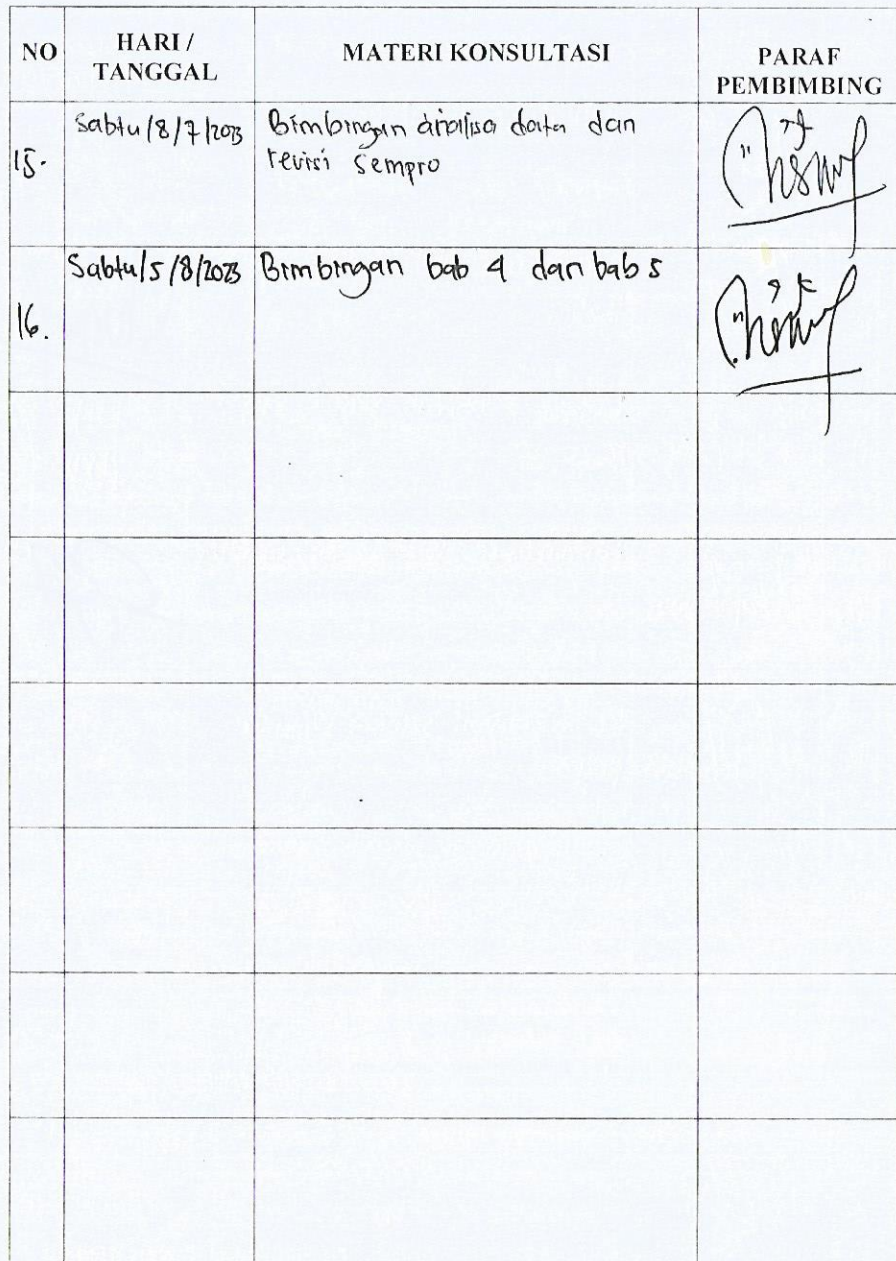 NO
HARI /
TANGGAL
MATERI KONSULTASI
PARAF
PEMBIMBING
15.
Sabtu/8/7/2023
Bimbingan analisa data dan
revisi sempro
16.
Sabtu/5/8/2023
Bimbingan bab 4 dan bab 5